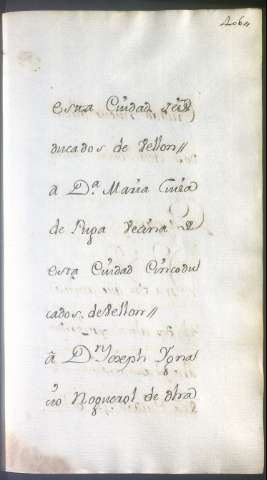 406
esta Ciudad
ducados de Vellon//
a D.ª Maria
de Puga Vecina
esta Ciudad Cinco du
cados. de Vellon//
â D.ⁿ Joseph Igna
cio Noguerol de